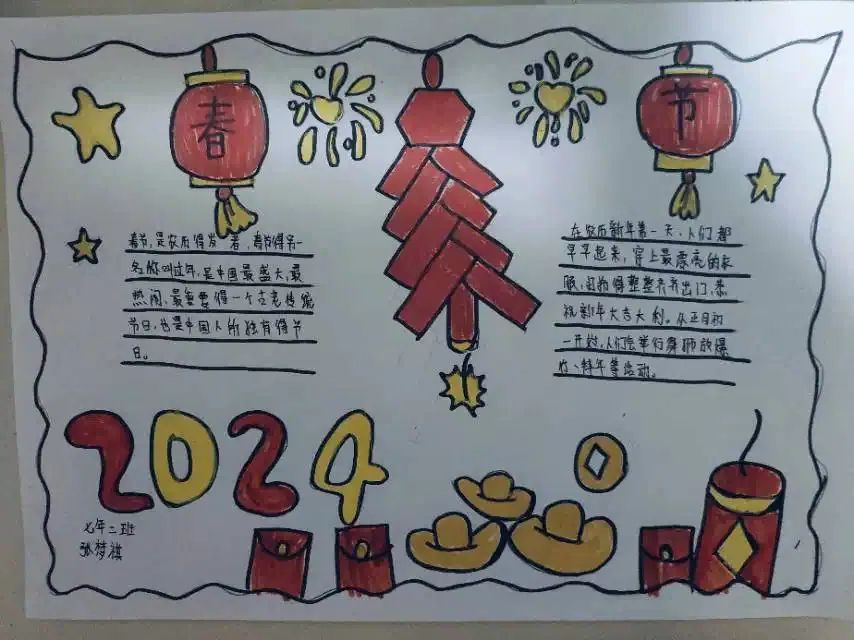 春
节
春节,是农历得岁首,春节得另一
名称叫过年,是中国最盛大,最
热闹,最重要得一个古老传统
节日,也是中国人所独有得节
日。
在农历新年第一天,人们都
早早起来,穿上最漂亮的衣
服,打扮得整整齐齐出门,恭
祝新年大吉大利。从正月初
一开始,人们会举行舞狮放爆
竹、拜年等活动。
2024
七年二班
张梦祺